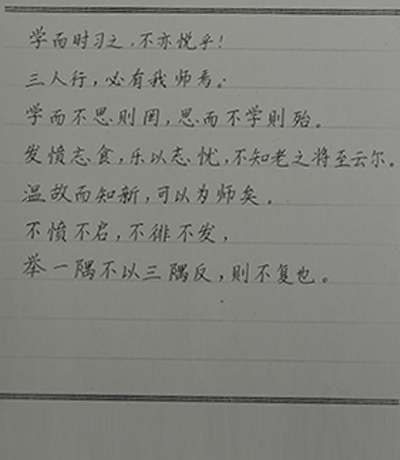 学而时习之,不亦悦乎!
三人行,必有我师焉。
学而不思则罔,思而不学则殆。
发愤忘食,乐以忘忧,不知老之将至云尔。
温故而知新,可以为师矣。
不愤不启,不徘不发,
举一隅不以三隅反,则不复也。